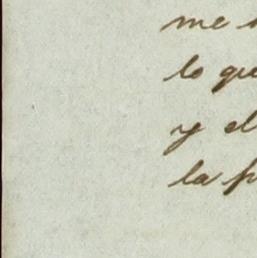 me
lo que
y el
la p